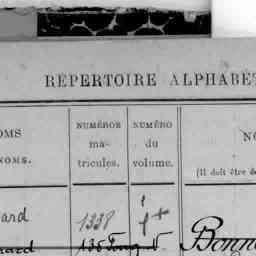 RÉPERTOIRE ALPHABÉ
OMS
NOMS.
NUMÉROS
ma-
tricules.
NUMÉRO
du
volume.
NO
(Il doit être d
ard
1338
nard
Bonn